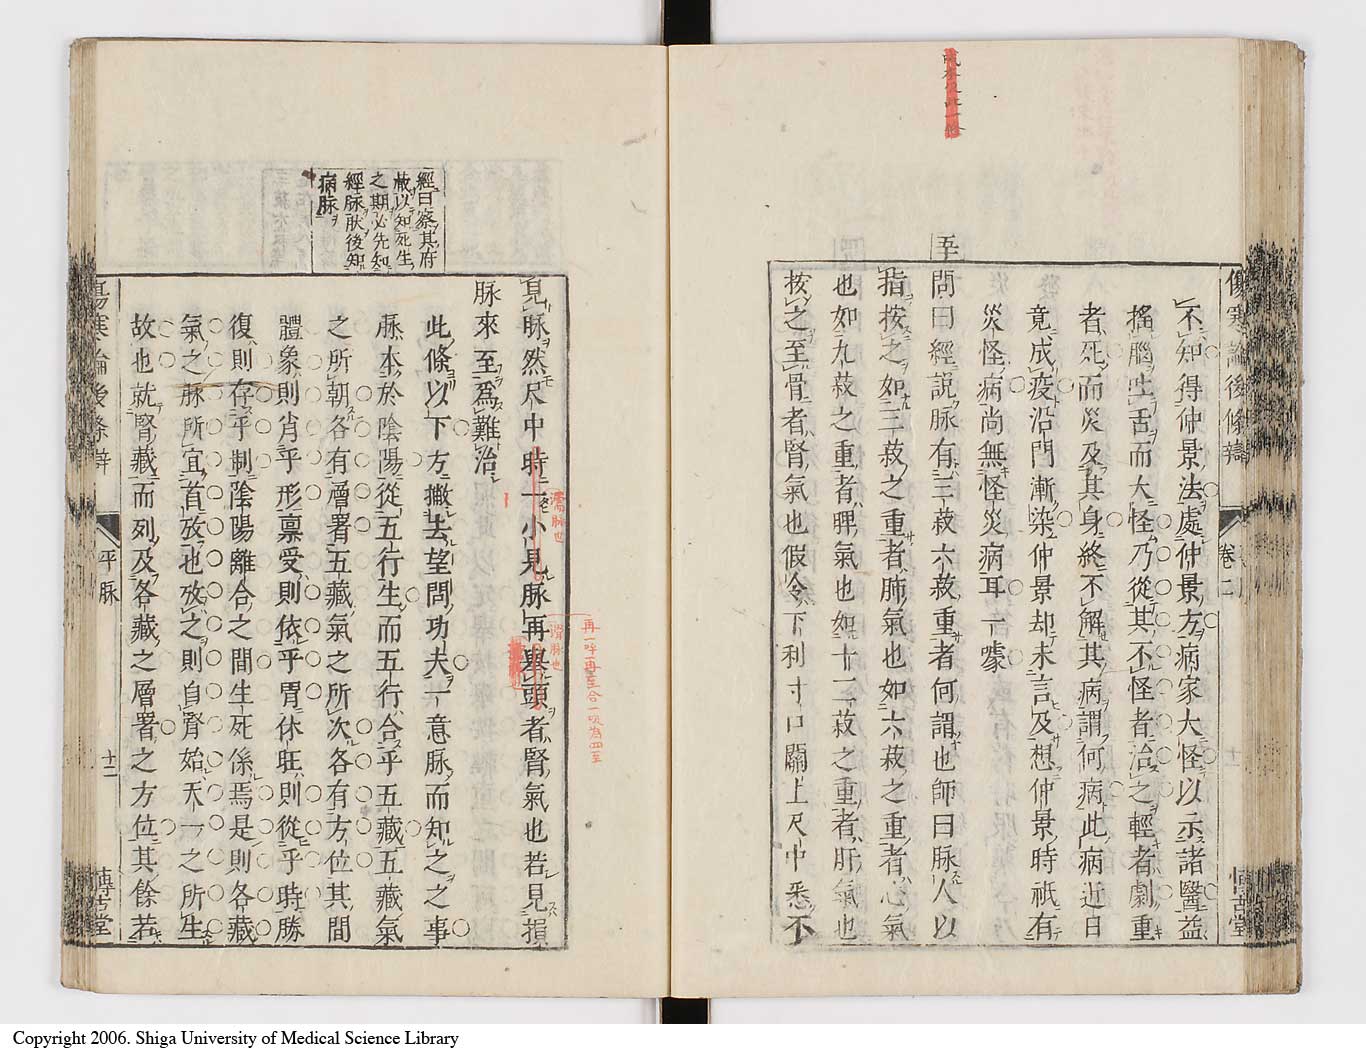 傷寒論後條辯
卷二
博古堂
不知得仲景法處仲景方病家大怪以示諸醫益
搖腦吐舌而大怪乃從其不怪者治之輕者劇重
者死而災及其身終不解其病謂何病此病近日
竟成疫沿門漸染仲景却未言及想仲景時祇有
災怪病尚無怪災病耳一噱
五
問曰經說脉有三菽六菽重者何謂也師曰脉人以
指按之如三菽之重者肺氣也如六菽之重者心氣
也如九菽之重者脾氣也如十二菽之重者肝氣也
按之至骨者腎氣也假令下利寸口關上尺中悉不
經曰察其府
藏以知死生
之期必先知
經脉狀後知
病脉
見脉然尺中時一小見脉再舉頭者腎氣也若見損
脉來至爲難治
濡脉也
滑脉也
再一呼再至合一吸為四至
此條以下方撇去望問功夫一意脉而知之之事
脉本於陰陽從五行生而五行合乎五藏五藏氣
之所朝各有層署五藏氣之所次各有方位其間
體象則肖乎形禀受則依乎胃休旺則從乎時勝
復則存乎制陰陽離合之間生死係焉是則各藏
氣之脉所宜首攷也攷之則自腎始天一之所生
故也就腎藏而列及各藏之層署之方位其餘若
傷寒論後條辯
平脉
十二
博古堂
Copyright 2006. Shiga University of Medical Science Library